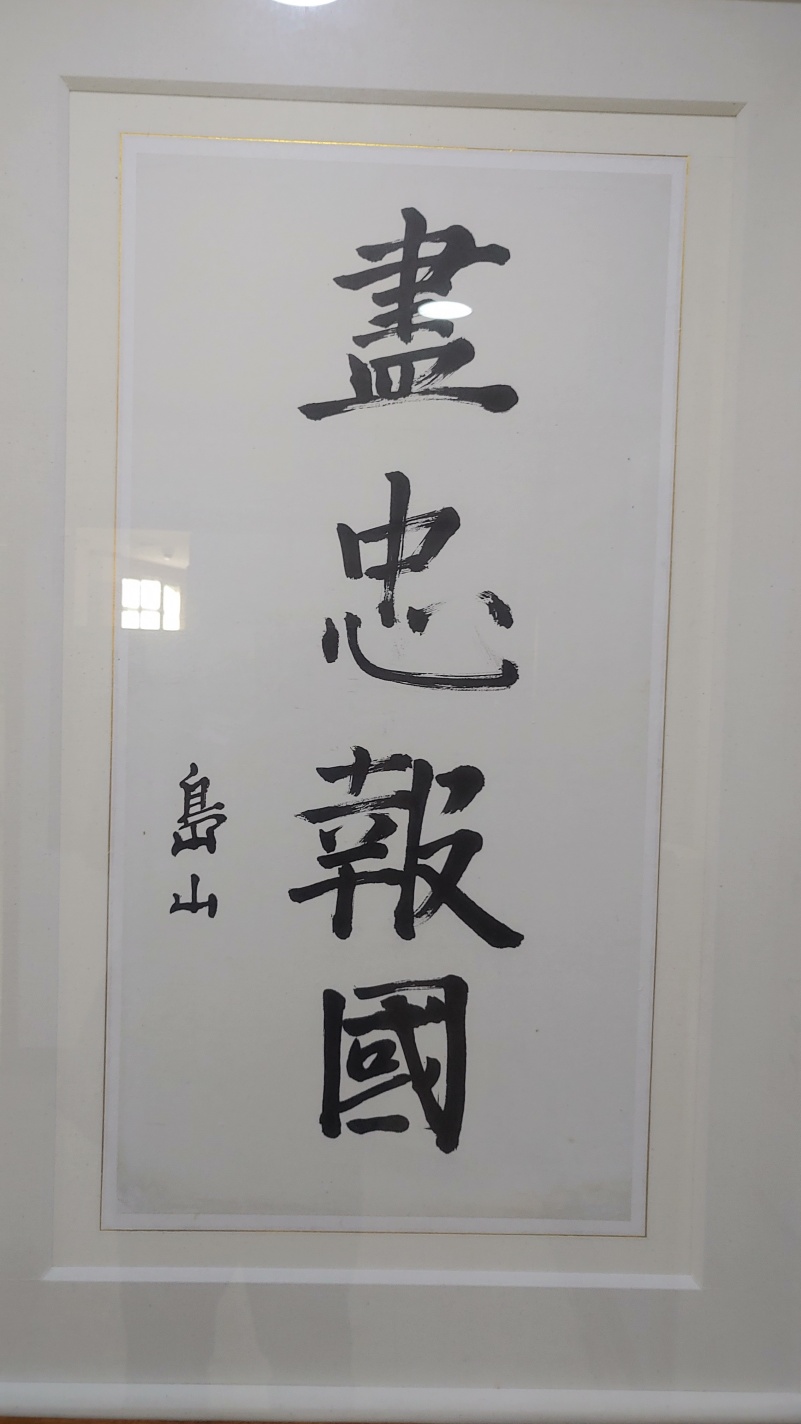 盡忠報國
島山